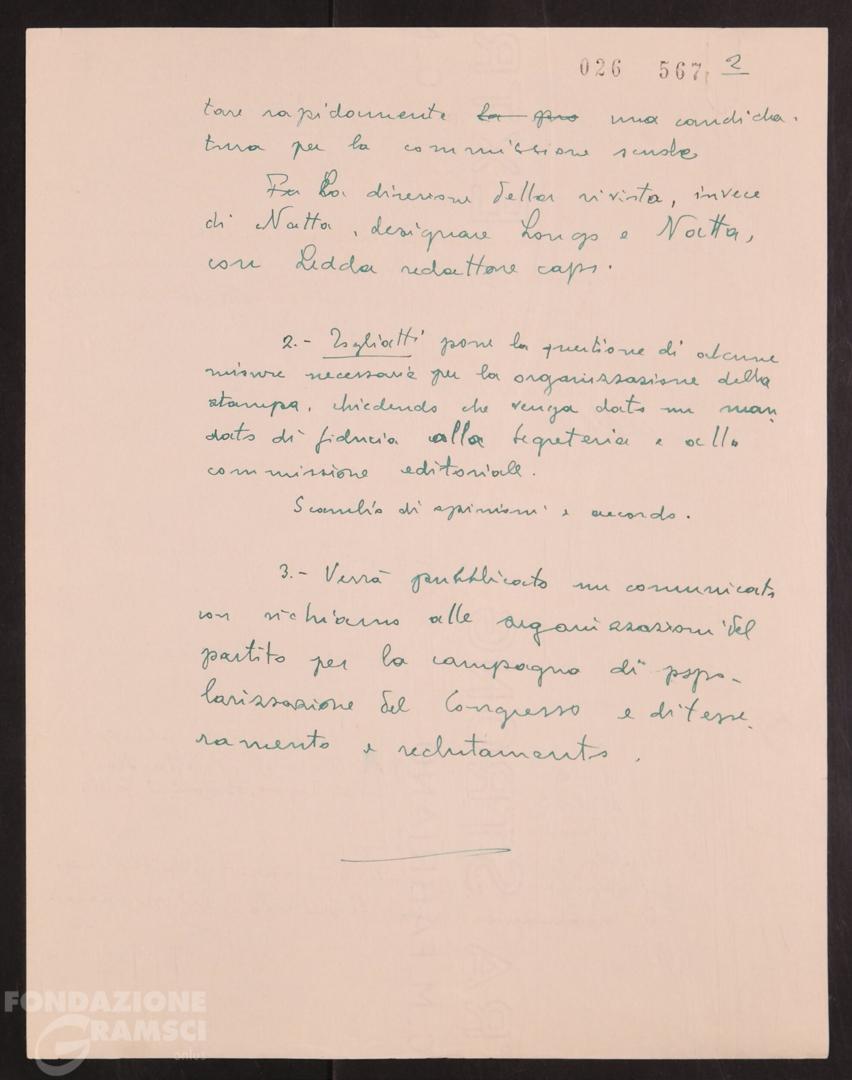 026 567 2
tare rapidamente la pro una candida-
tura per la commissione scuola
La direzione della rivista, invece
di Natta, designare Longo e Natta,
con Ledda redattore capo.
2.- Togliatti pone la questione di alcune
misure necessarie per la organizzazione della
stampa, chiedendo che venga dato un man
dato di fiducia alla Segreteria e alla
commissione editoriale.
Scambio di opinioni e accordo.
3.- Verrà pubblicato un comunicato
con richiamo alle organizzazioni del
partito per la campagna di popo-
larizzazione del Congresso e di tesse-
ramento e reclutamento.
FONDAZIONE
GRAMSCI
onlus